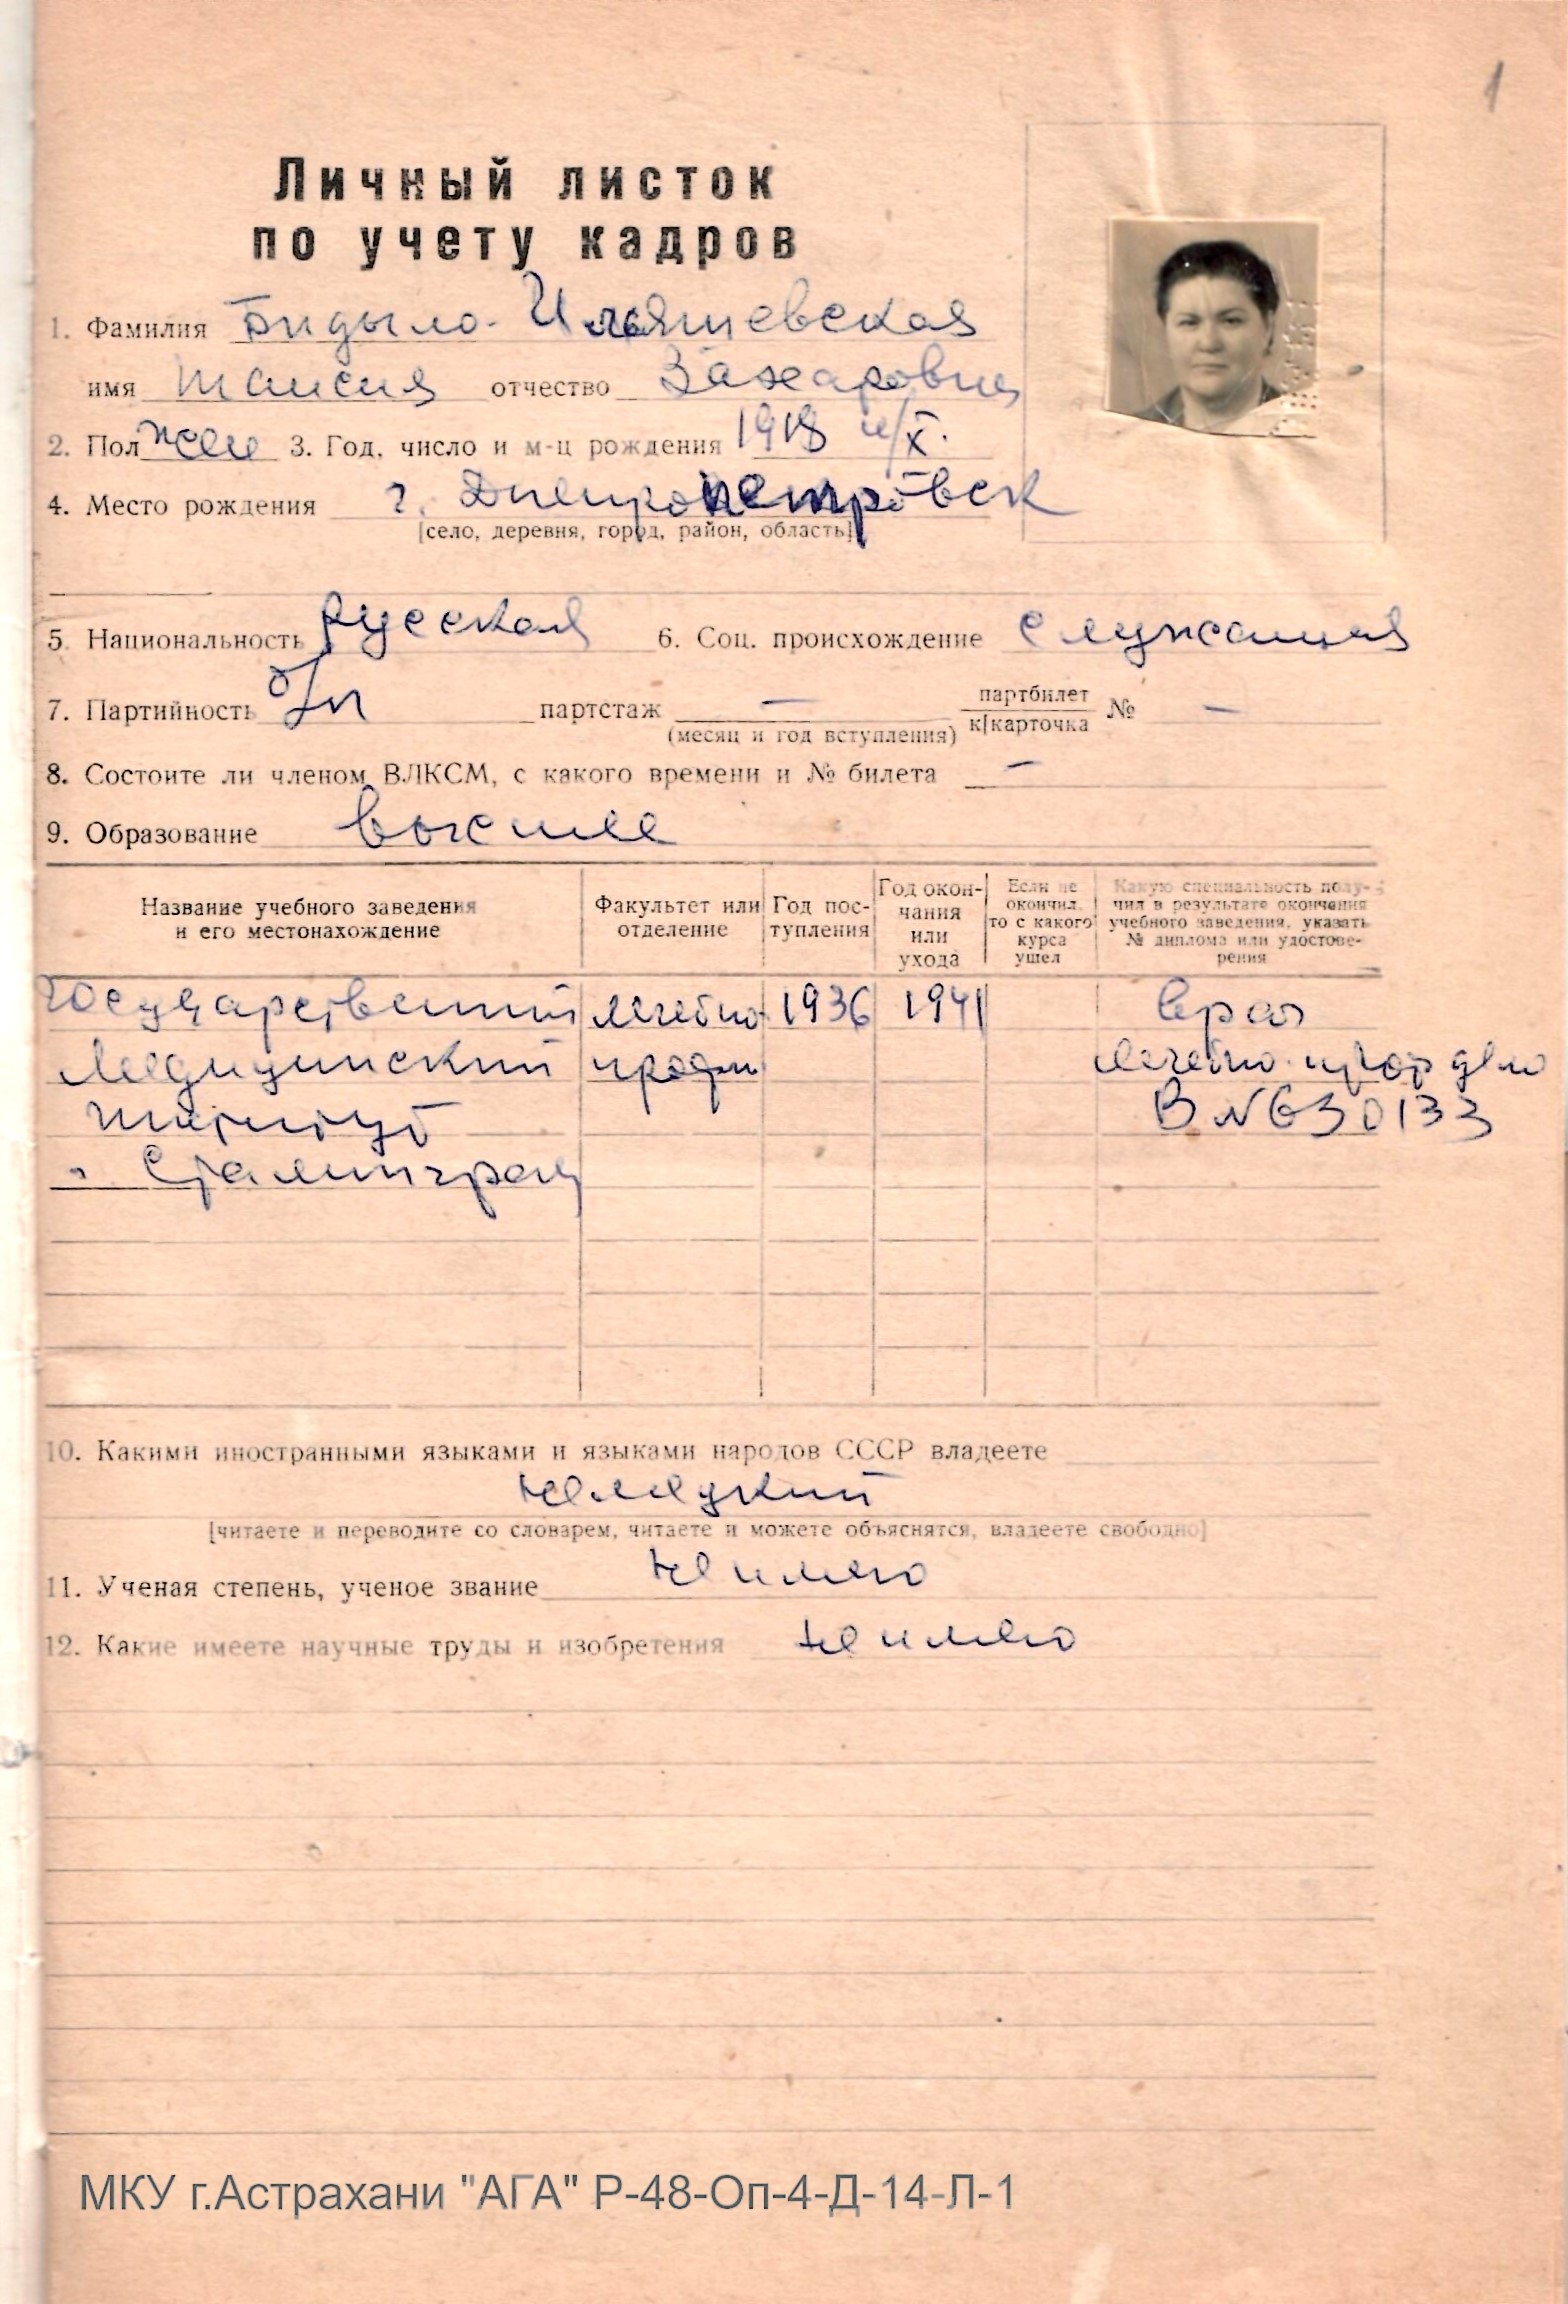 1
Личный листок
по учету кадров
1. Фамилия Бидыло-Ильяшевская
имя Таисия отчество Захаровна
2. Пол жен 3. Год, число и м-ц рождения 1918 /X.
4. Место рождения г. Днепропетровск
[село, деревня, город, район, область]
5. Национальность русская 6. Соц. происхождение служащая
7. Партийность б/п партстаж — партбилет к[карточка № —
(месяц и год вступления)
8. Состоите ли членом ВЛКСМ, с какого времени и № билета —
9. Образование высшее
Название учебного заведения и его местонахождение
Факультет или отделение
Год поступления
Год окончания или ухода
Если не окончил, то с какого курса ушел
Какую специальность получил в результате окончания учебного заведения, указать № диплома или удостоверения
Государственный лечебно 1936 1941 врач
Медицинский проф лечебно-проф дело
институт В №630133
г. Сталинград
10. Какими иностранными языками и языками народов СССР владеете
немецкий
[читаете и переводите со словарем, читаете и можете объяснятся, владеете свободно]
11. Ученая степень, ученое звание не имею
12. Какие имеете научные труды и изобретения не имею
МКУ г.Астрахани "АГА" Р-48-Оп-4-Д-14-Л-1